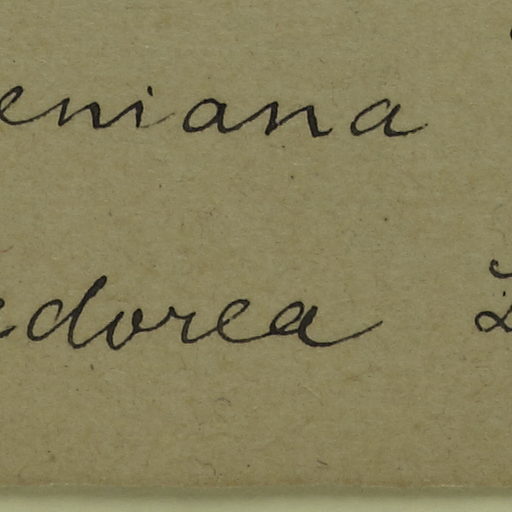 eniana
edorea